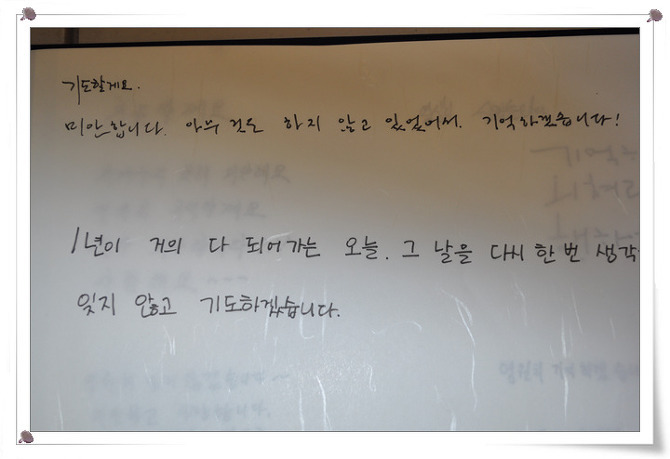 기도할게요.
미안합니다. 아무것도 하지 않고 있었어서. 기억하겠습니다!
1년이 거의 다 되어가는 오늘. 그 날을 다시 한번 생각
잊지 않고 기도하겠습니다.